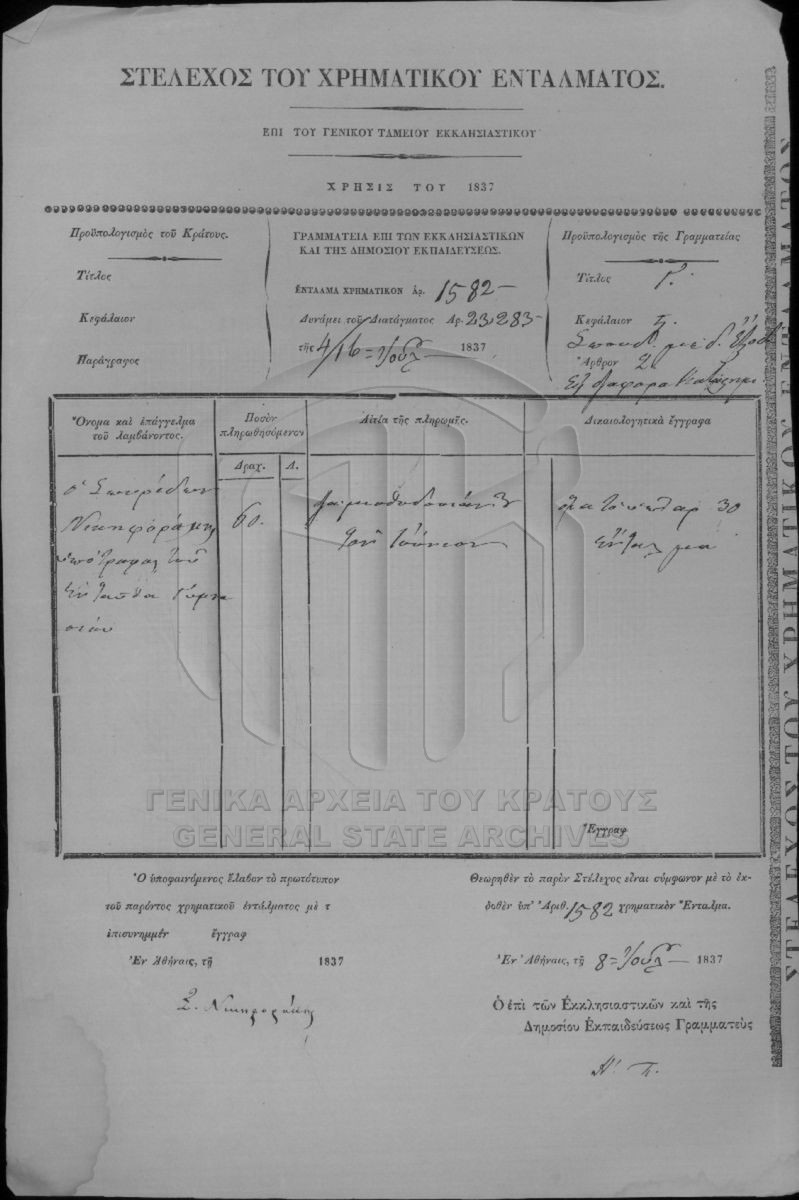 ΣΤΕΛΕΧΟΣ ΤΟΥ ΧΡΗΜΑΤΙΚΟΥ ΕΝΤΑΛΜΑΤΟΣ.
ΕΠΙ ΤΟΥ ΓΕΝΙΚΟΥ ΤΑΜΕΙΟΥ ΕΚΚΛΗΣΙΑΣΤΙΚΟΥ
ΧΡΗΣΙΣ ΤΟΥ 1837
Προϋπολογισμὸς τοῦ Κράτους.
Τίτλος
Κεφάλαιον
Παράγραφος
ΓΡΑΜΜΑΤΕΙΑ ΕΠΙ ΤΩΝ ΕΚΚΛΗΣΙΑΣΤΙΚΩΝ
ΚΑΙ ΤΗΣ ΔΗΜΟΣΙΟΥ ΕΚΠΑΙΔΕΥΣΕΩΣ.
ΕΝΤΑΛΜΑ ΧΡΗΜΑΤΙΚΟΝ Ἀρ. 1582
Δυνάμει τοῦ Διατάγματος Αρ. 23283
τῆς 4/16 Ἰουλ 1837
Προϋπολογισμὸς τῆς Γραμματείας
Τίτλος Γ.
Κεφάλαιον
Ἄρθρον 2
Ὄνομα καὶ ἐπάγγελμα
τοῦ λαμβάνοντος.
Ποσὸν
πληρωθησόμενον
Δραχ. Λ.
Αἰτία τῆς πληρωμῆς.
Δικαιολογητικὰ ἔγγραφα
ὁ Σπυρίδων
Νικηφοράκης
ὑπογραφεὺς τοῦ
ἐνταῦθα Γυμνα
σίου
60.
διὰ μισθοδοσίαν
τὸν Ἰούνιον
30
Ἔγγραφ
ΓΕΝΙΚΑ ΑΡΧΕΙΑ ΤΟΥ ΚΡΑΤΟΥΣ
GENERAL STATE ARCHIVES
Ὁ ὑποφαινόμενος ἔλαβον τὸ πρωτότυπον
τοῦ παρόντος χρηματικοῦ ἐντάλματος μὲ τ
ἐπισυνημμέν ἔγγραφ
Ἐν Ἀθήναις, τῇ 1837
Σ. Νικηφοράκης
Θεωρηθὲν τὸ παρὸν Στέλεχος εἶναι σύμφωνον μὲ τὸ ἐκ-
δοθὲν ὑπ' Ἀριθ. 1582 χρηματικὸν Ἔνταλμα.
Ἐν Ἀθήναις, τῇ 8 Ἰουλ 1837
Ὁ ἐπὶ τῶν Ἐκκλησιαστικῶν καὶ τῆς
Δημοσίου Ἐκπαιδεύσεως Γραμματεὺς
Α. Π.
ΣΤΕΛΕΧΟΣ ΤΟΥ ΧΡΗΜΑΤΙΚΟΥ ΕΝΤΑΛΜΑΤΟΣ